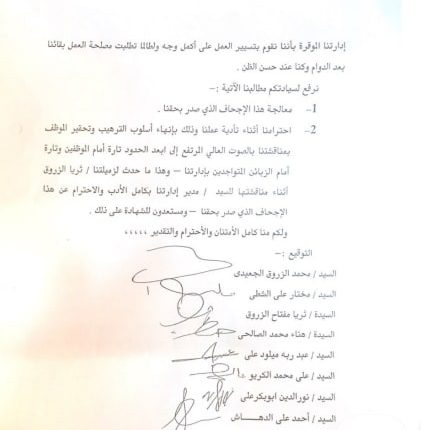 إدارتنا الموقرة بأننا نقوم بتسيير العمل على أكمل وجه ولطالما تطلبت مصلحة العمل بقائنا
بعد الدوام وكنا عند حسن الظن .
نرفع لسيادتكم مطالبنا الآتية :-
1- معالجة هذا الإجحاف الذي صدر بحقنا .
2- احترامنا أثناء تأدية عملنا وذلك بإنهاء أسلوب الترهيب وتحقير الموظف
بمناقشتنا بالصوت العالي المرتفع إلى ابعد الحدود تارة أمام الموظفين وتارة
أمام الزبائن المتواجدين بإدارتنا – وهذا ما حدث لزميلتنا / ثريا الزروق
أثناء مناقشتها للسيد / مدير إدارتنا بكامل الأدب والاحترام عن هذا
الإجحاف الذي صدر بحقنا – ومستعدون للشهادة على ذلك .
ولكم منا كامل الأمتنان والأحترام والتقدير ،،،،،
التوقيع :-
السيد / محمد الزروق الجعيدى
السيد / مختار على الشطى
السيدة / ثريا مفتاح الزروق
السيدة / هناء محمد الصالحى
السيد / عبد ربه ميلود على
السيد / على محمد الكريو
السيد / نورالدين ابوبكر على
السيد / أحمد على الدهـــاش